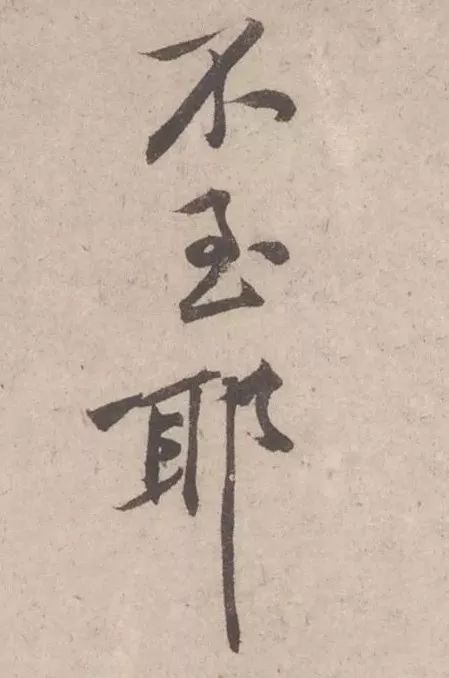 不至耶